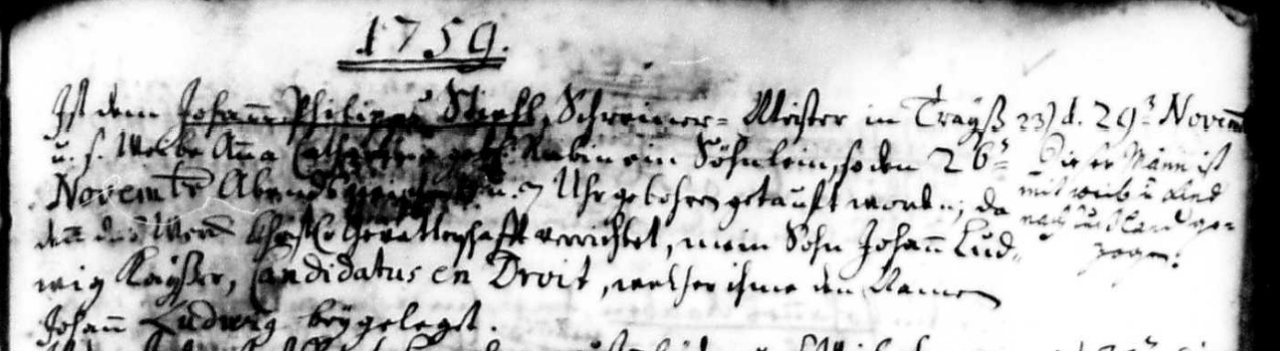 1759.
Ist dem Johann Philipps Stiehl, Schreiner= Meister in Trayß
u. s. Weibe Anna Catharina geb. Rubin ein Söhnlein, so den 26ᵗ
Novembr Abends u. 7 Uhr gebohren getaufft worden; da
denn das Werck Christl. Gevatterschafft verrichtet, mein Sohn Johann Lud-
wig Kayßer, Candidatus en Droit, welcher ihme den Namen
Johann Ludwig beygelegt.
23) d. 29ᵗ Novem
Dieser Mann ist
mit weib u. Kind
nach Rußland ge=
zogen.